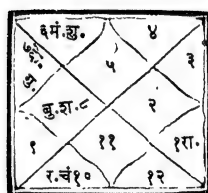 ६मं.शु.
४
५
३
बु.श.८
२
९
११
१रा.
र.चं१०
१२